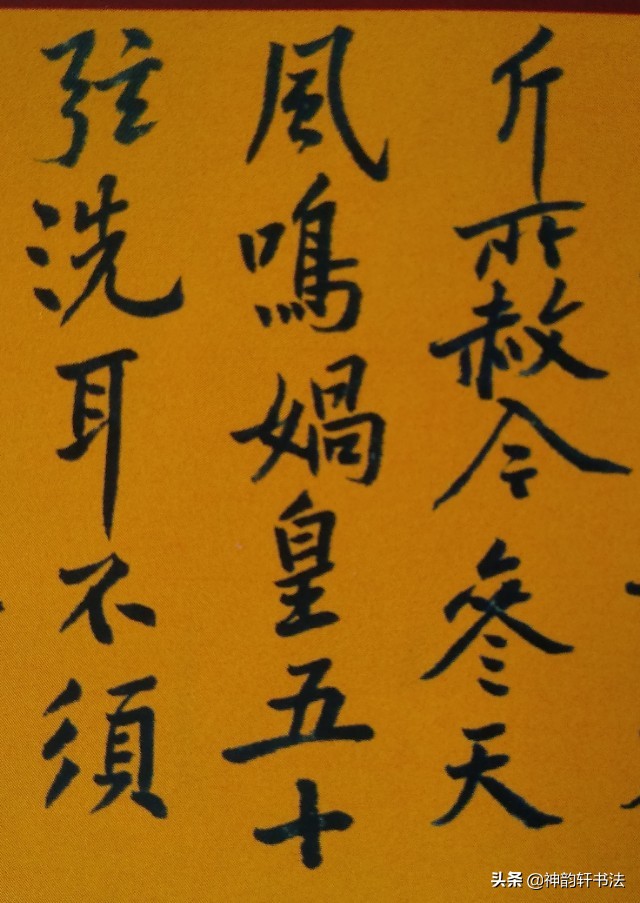 斤所赦今參天
風鳴媧皇五十
弦洗耳不須
头条 @神韵轩书法